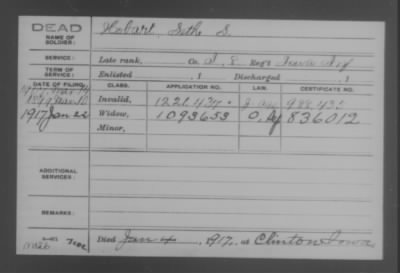 DEAD
NAME OF SOLDIER: Hobart, Seth S.
SERVICE: Late rank, Co. A, 8 Reg't Iowa Inf
TERM OF SERVICE: Enlisted , 1 Discharged , 1
DATE OF FILING. CLASS. APPLICATION NO. LAW. CERTIFICATE NO.
1899 Mar 10 Invalid, 1221437 988,435
1917 Jan 22 Widow, 1093653 836012
Minor,
ADDITIONAL SERVICES:
REMARKS:
Died Jan , 1917, at Clinton Iowa